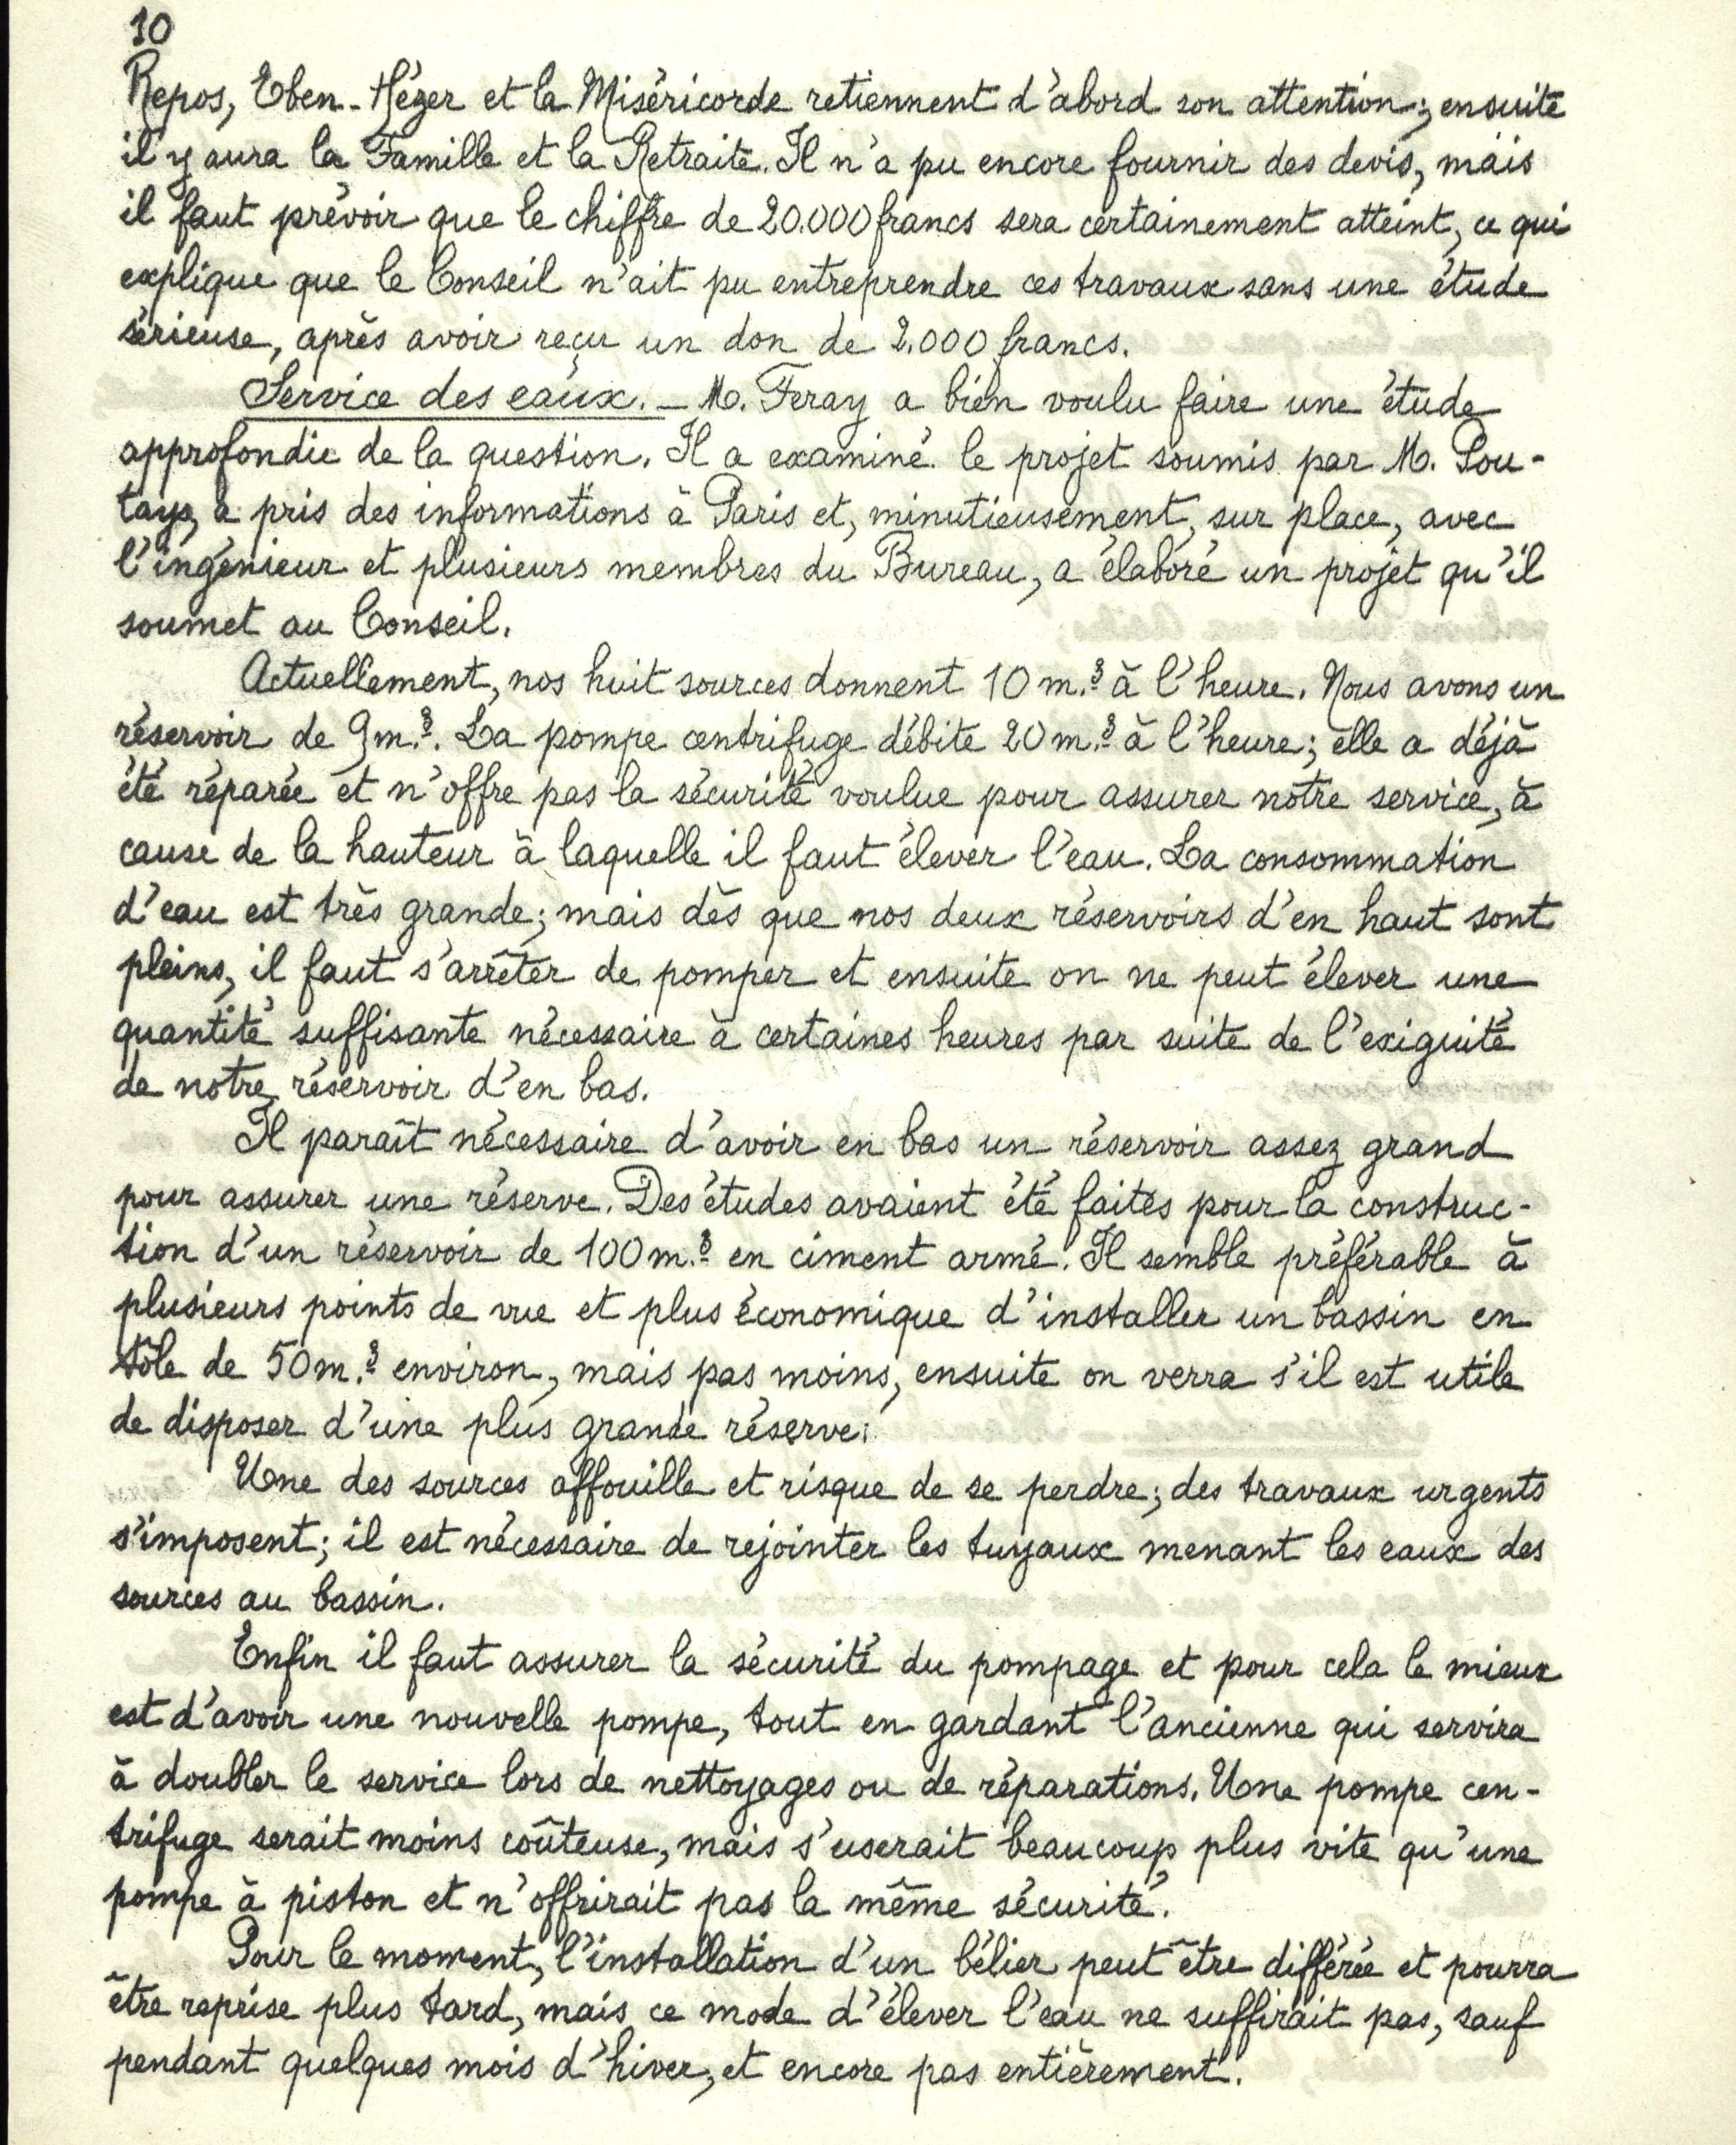 10
Repos, Eben-Hézer et la Miséricorde retiennent d'abord son attention; ensuite
il y aura la Famille et la Retraite. Il n'a pu encore fournir des devis, mais
il faut prévoir que le chiffre de 20.000 francs sera certainement atteint, ce qui
explique que le Conseil n'ait pu entreprendre ces travaux sans une étude
sérieuse, après avoir reçu un don de 2.000 francs.
Service des eaux. — M. Feray a bien voulu faire une étude
approfondie de la question. Il a examiné le projet soumis par M. Pou-
tays, a pris des informations à Paris et, minutieusement, sur place, avec
l'ingénieur et plusieurs membres du Bureau, a élaboré un projet qu'il
soumet au Conseil.
Actuellement, nos huit sources donnent 10 m.³ à l'heure. Nous avons un
réservoir de 9 m.³. La pompe centrifuge débite 20 m.³ à l'heure; elle a déjà
été réparée et n'offre pas la sécurité voulue pour assurer notre service, à
cause de la hauteur à laquelle il faut élever l'eau. La consommation
d'eau est très grande; mais dès que nos deux réservoirs d'en haut sont
pleins, il faut s'arrêter de pomper et ensuite on ne peut élever une
quantité suffisante nécessaire à certaines heures par suite de l'exiguité
de notre réservoir d'en bas.
Il paraît nécessaire d'avoir en bas un réservoir assez grand
pour assurer une réserve. Des études avaient été faites pour la construc-
tion d'un réservoir de 100 m.³ en ciment armé. Il semble préférable à
plusieurs points de vue et plus économique d'installer un bassin en
tôle de 50 m.³ environ, mais pas moins, ensuite on verra s'il est utile
de disposer d'une plus grande réserve.
Une des sources affouille et risque de se perdre; des travaux urgents
s'imposent; il est nécessaire de rejointer les tuyaux menant les eaux des
sources au bassin.
Enfin il faut assurer la sécurité du pompage et pour cela le mieux
est d'avoir une nouvelle pompe, tout en gardant l'ancienne qui servira
à doubler le service lors de nettoyages ou de réparations. Une pompe cen-
trifuge serait moins coûteuse, mais s'userait beaucoup plus vite qu'une
pompe à piston et n'offrirait pas la même sécurité.
Pour le moment, l'installation d'un bélier peut être différée et pourra
être reprise plus tard, mais ce mode d'élever l'eau ne suffirait pas, sauf
pendant quelques mois d'hiver, et encore pas entièrement.